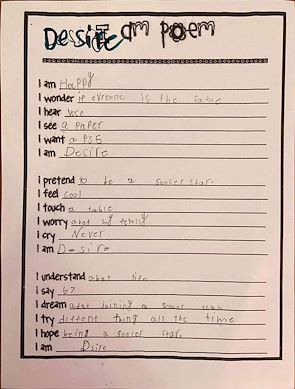 Desire am poem
I am Happy
I wonder if evreone is the same
I hear voce
I see a paper
I want a PS5
I am Desire
I pretend to be a soocer star.
I feel cool
I touch a table
I worry abat my family
I cry Never
I am Desire
I understand abat life
I say 67
I dream abat joining a soocer team
I try diffent thing all the time
I hope being a soocer star.
I am Dsire